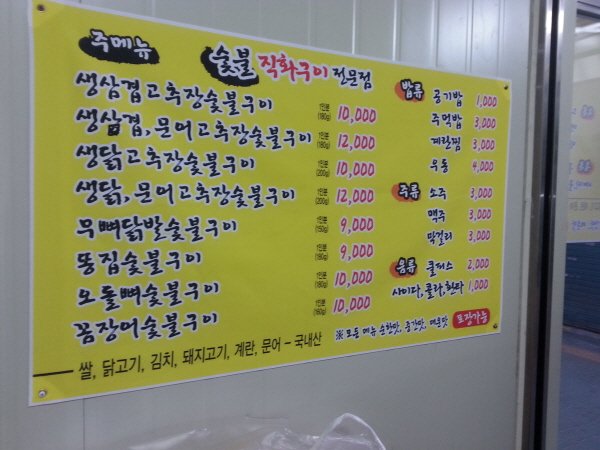 주메뉴
숯불 직화구이 전문점
생삼겹고추장숯불구이 1인분 (180g) 10,000
생삼겹,문어고추장숯불구이 1인분 (180g) 12,000
생닭고추장숯불구이 1인분 (200g) 10,000
생닭,문어고추장숯불구이 1인분 (200g) 12,000
무뼈닭발숯불구이 1인분 (150g) 9,000
똥집숯불구이 1인분 (180g) 9,000
오돌뼈숯불구이 1인분 (180g) 10,000
꼼장어숯불구이 1인분 10,000
밥류 공기밥 1,000
주먹밥 3,000
계란찜 3,000
우동 4,000
주류 소주 3,000
맥주 3,000
막걸리 3,000
음류 쿨피스 2,000
사이다,콜라,환타 1,000
※ 모든 메뉴 순한맛, 중간맛, 매운맛 포장가능
쌀, 닭고기, 김치, 돼지고기, 계란, 문어 - 국내산